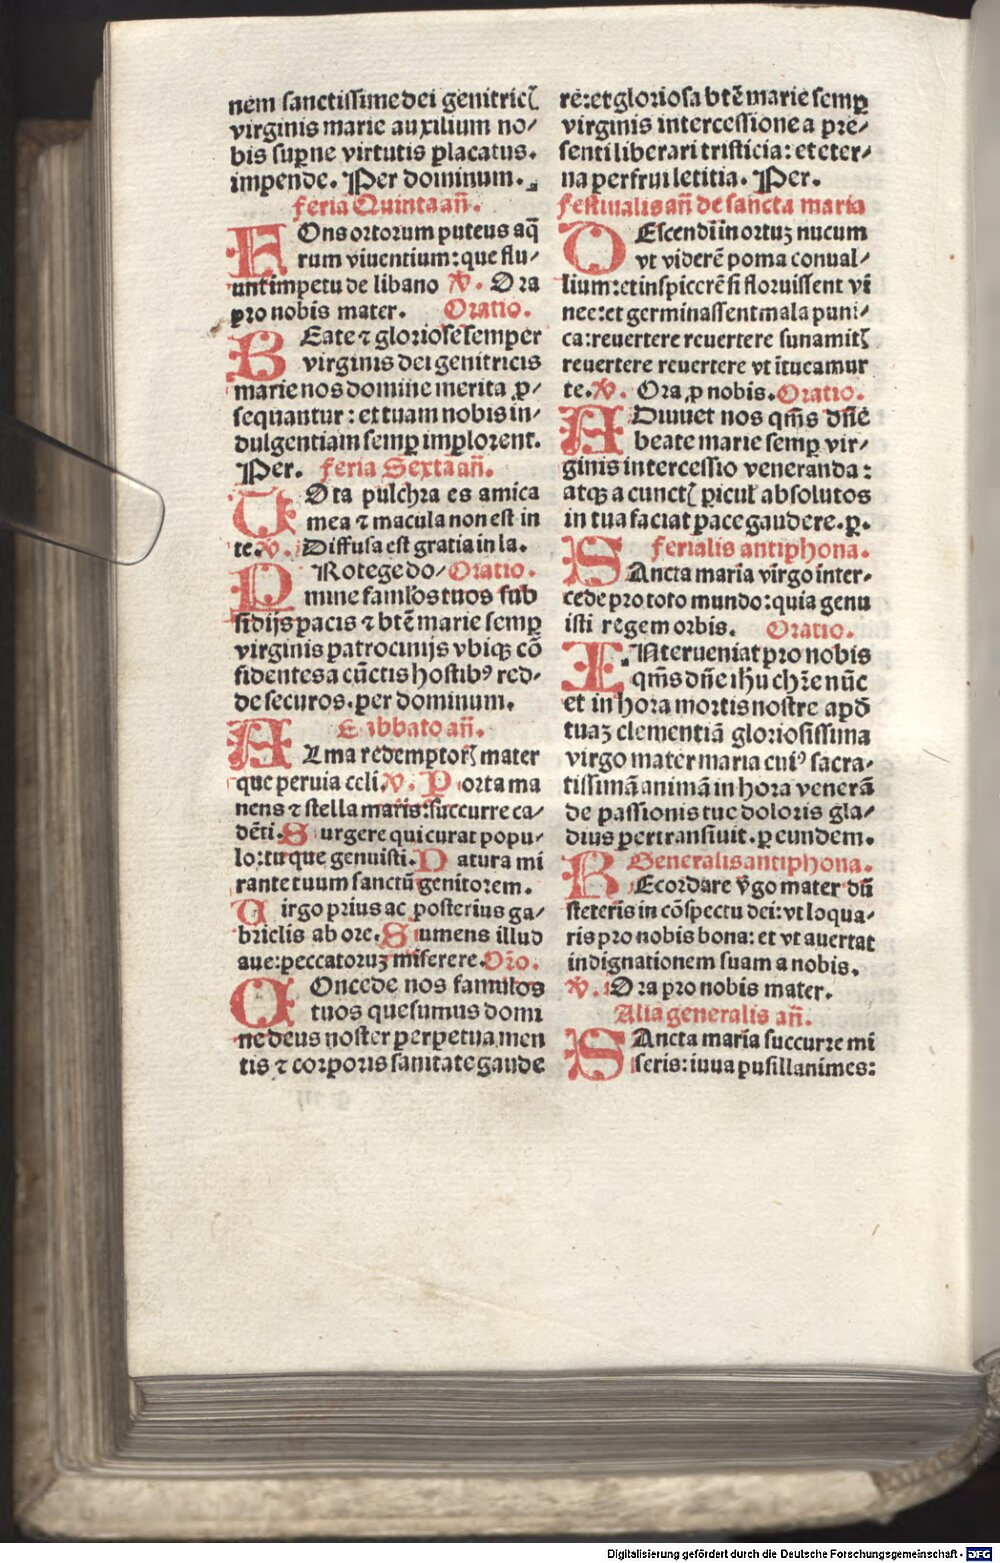 nem sanctissime dei genitricꝭ
virginis marie auxilium no/
bis suꝑne virtutis placatus.
impende. Per dominum.
feria Quinta añ.
FOns ortorum puteus aq̄
rum viuentium: que flu/
unt impetu de libano V̷. Ora
pro nobis mater. Oratio.
BEate ⁊ gloriose semper
virginis dei genitricis
marie nos domine merita ꝓ/
sequantur: et tuam nobis in/
dulgentiam semꝑ implorent.
Per. feria Sexta añ.
TOta pulchra es amica
mea ⁊ macula non est in
te. V̷. Diffusa est gratia in la.
PRotege do/ Oratio.
mine famĺos tuos sub
sidijs pacis ⁊ btē marie semꝑ
virginis patrocinijs vbiqꝫ cō
fidentes a cūctis hostibꝰ red-
de securos. per dominum.
Sabbato añ.
ALma redemptorꝭ mater
que peruia celi. V̷. Porta ma
nens ⁊ stella maris: succurre ca/
dēti. Surgere qui curat popu/
lo: tu que genuisti. Natura mi
rante tuum sanctū genitorem.
Virgo prius ac posterius ga/
brielis ab ore. Sumens illud
aue: peccatoruꝫ miserere. Oro.
COncede nos famulos
tuos quesumus domi
ne deus noster perpetua men
tis ⁊ corporis sanitate gaude
re: et gloriosa btē marie semꝑ
virginis intercessione a pre/
senti liberari tristicia: et eter/
na perfrui letitia. Per.
festiualis añ de sancta maria
DEscendi in ortuꝫ nucum
vt viderē poma conual/
lium: et inspicerē si floruissent vi
nee: et germinassent mala puni/
ca: reuertere reuertere sunamitꝭ
reuertere reuertere vt ītueamur
te. V̷. Ora ꝓ nobis. Oratio.
ADiuuet nos qm̄s dn̄e
beate marie semꝑ vir/
ginis intercessio veneranda:
atqꝫ a cunctꝭ pericuł absolutos
in tua faciat pace gaudere. ꝑ.
ferialis antiphona.
SAncta maria virgo inter-
cede pro toto mundo: quia genu
isti regem orbis. Oratio.
INterueniat pro nobis
qm̄s dn̄e ihū chr̄e nūc
et in hora mortis nostre apd̄
tuaꝫ clementiā gloriosissima
virgo mater maria cuiꝰ sacra-
tissimā animā in hora venerā
de passionis tue doloris gla/
dius pertransiuit. ꝑ eundem.
Generalis antiphona.
REcordare v̄go mater dū
steteris in cōspectu dei: vt loqua-
ris pro nobis bona: et vt auertat
indignationem suam a nobis.
V̷. Ora pro nobis mater.
Alia generalis añ.
SAncta maria succurre mi
seris: iuua pusillanimes:
Digitalisierung gefördert durch die Deutsche Forschungsgemeinschaft - DFG